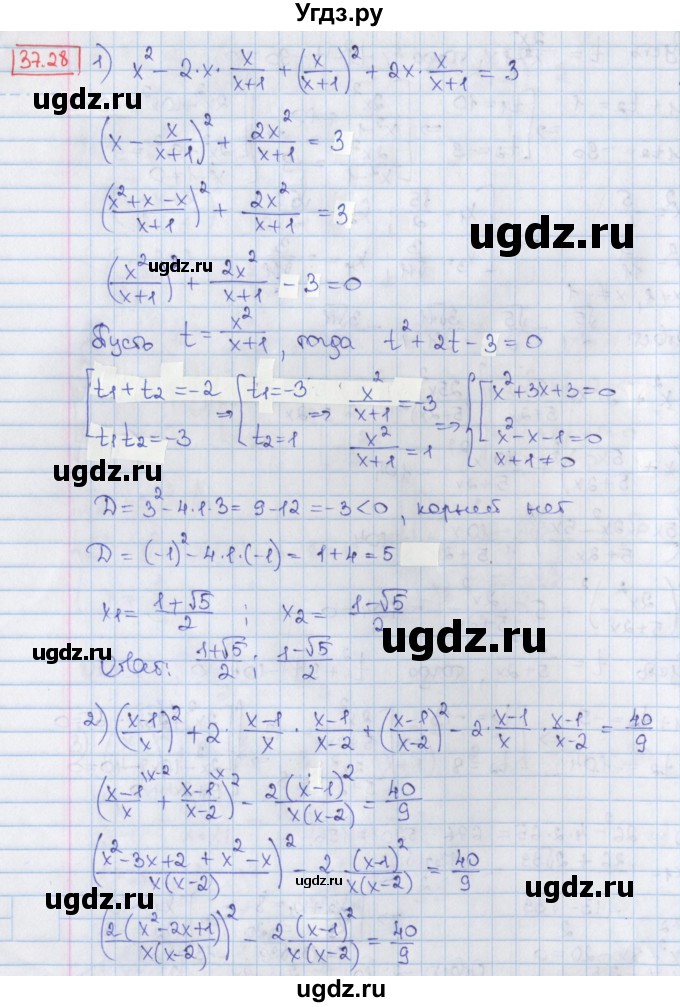 Угдз.ру
37.28 1) x² - 2·x·x/(x+1) + (x/(x+1))² + 2x·x/(x+1) = 3
(x - x/(x+1))² + 2x²/(x+1) = 3
((x²+x-x)/(x+1))² + 2x²/(x+1) = 3
ugdz.ru
ugdz.ru
ugdz.ru
(x²/(x+1))² + 2x²/(x+1) - 3 = 0
ugdz.ru
Пусть t = x²/(x+1), тогда t² + 2t - 3 = 0
[t₁+t₂=-2 ⇒ [t₁=-3 ⇒ x²/(x+1) = -3 ⇒ {[x²+3x+3=0
t₁t₂=-3 t₂=1 x²/(x+1) = 1 x²-x-1=0
x+1≠0
ugdz.ru
D = 3²-4·1·3 = 9-12 = -3<0, корней нет
D = (-1)²-4·1·(-1) = 1+4 = 5
x₁ = (1+√5)/2 ; x₂ = (1-√5)/2
ugdz.ru
ugdz.ru
Ответ: (1+√5)/2 ; (1-√5)/2
2) ((x-1)/x)² + 2·(x-1)/x·(x-1)/(x-2) + ((x-1)/(x-2))² - 2·(x-1)/x·(x-1)/(x-2) = 40/9
ugdz.ru
((x-1)\x-2/x + (x-1)\x/(x-2))² - 2(x-1)²/(x(x-2)) = 40/9
((x²-3x+2+x²-x)/(x(x-2)))² - 2(x-1)²/(x(x-2)) = 40/9
ugdz.ru
ugdz.ru
ugdz.ru
(2(x²-2x+1)/(x(x-2)))² - 2(x-1)²/(x(x-2)) = 40/9